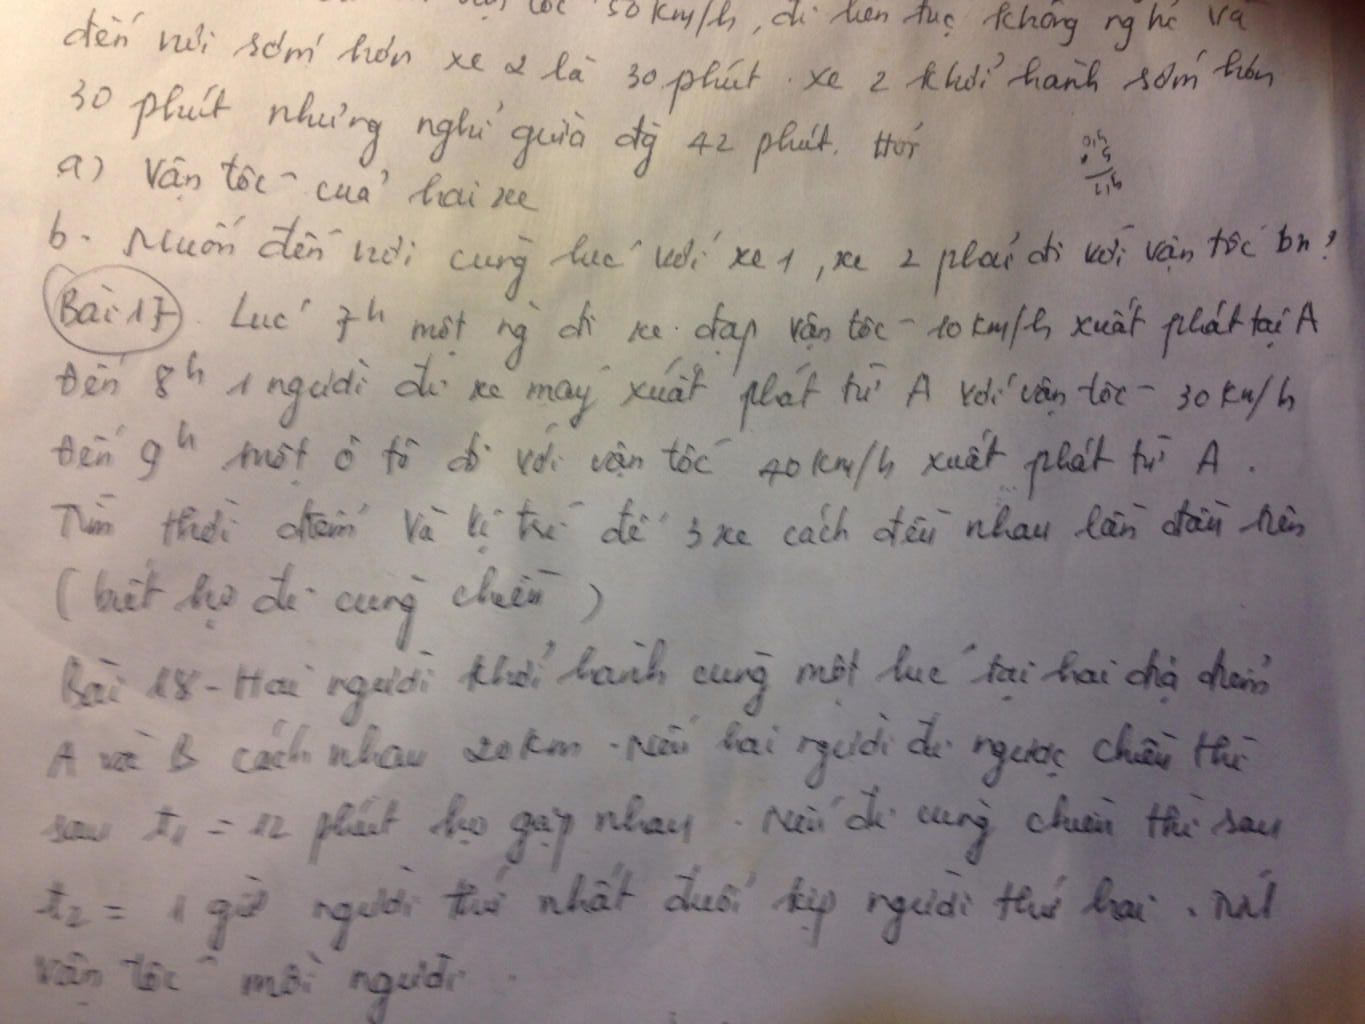 vận tốc 50km/h, đi liên tục không nghỉ và
đến nơi sớm hơn xe 2 là 30 phút. xe 2 khởi hành sớm hơn
30 phút nhưng nghỉ giữa đg 42 phút. Hỏi
a) Vận tốc của hai xe
b. Muốn đến nơi cùng lúc với xe 1, xe 2 phải đi với vận tốc bn?
Bài 17. Lúc 7h một ng đi xe đạp vận tốc 10km/h xuất phát tại A
đến 8h 1 người đi xe máy xuất phát từ A với vận tốc 30km/h
đến 9h một ô tô đi với vận tốc 40km/h xuất phát từ A.
Tìm thời điểm và vị trí để 3 xe cách đều nhau lần đầu tiên
(biết họ đi cùng chiều)
Bài 18 - Hai người khởi hành cùng một lúc tại hai địa điểm
A và B cách nhau 20km. Nếu hai người đi ngược chiều thì
sau t1 = 12 phút họ gặp nhau. Nếu đi cùng chiều thì sau
t2 = 1 giờ người thứ nhất đuổi kịp người thứ hai. Tính
vận tốc mỗi người.